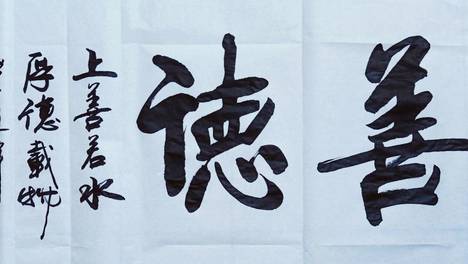 善德
上善若水
厚德載物